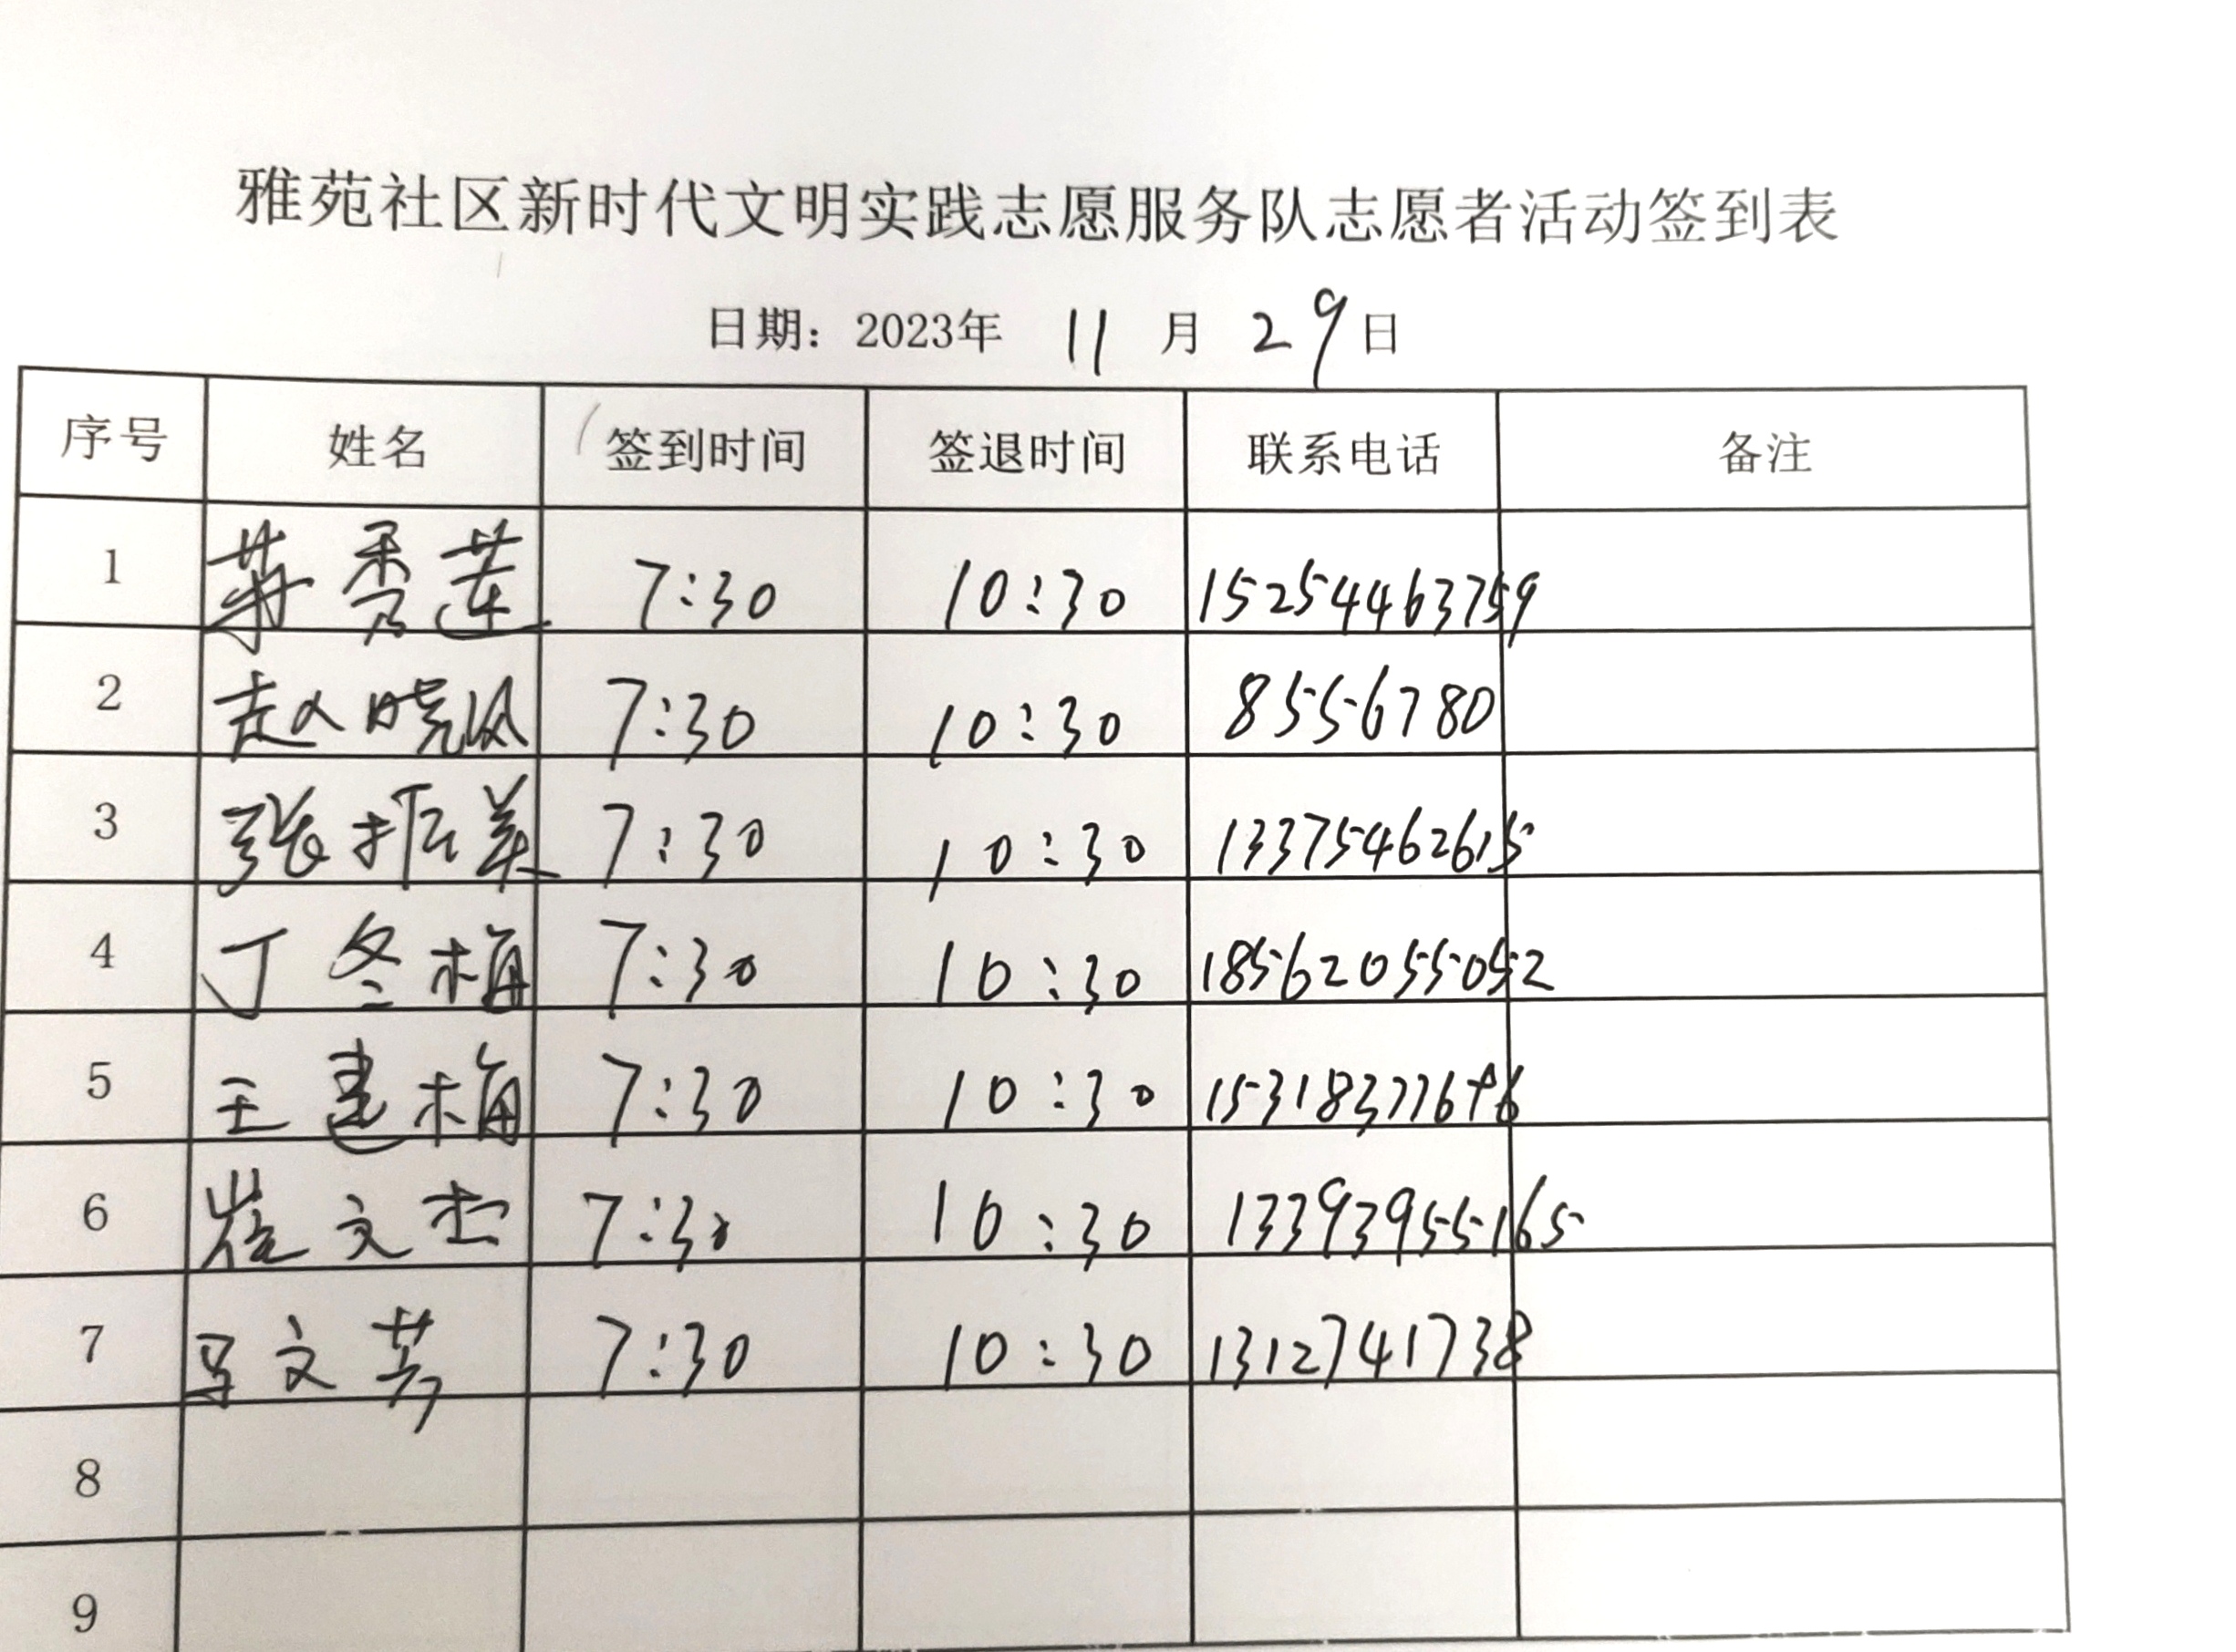 雅苑社区新时代文明实践志愿服务队志愿者活动签到表
日期：2023年 11 月 29日
序号 姓名 签到时间 签退时间 联系电话 备注
1 秀莲 7:30 10:30 15254463759
2 赵晓风 7:30 10:30 8556780
3 张振美 7:30 10:30 13375462615
4 丁冬梅 7:30 10:30 18562055052
5 王建梅 7:30 10:30
6 崔文杰 7:30 10:30 13393955165
7 马文芳 7:30 10:30 1312741738
8
9